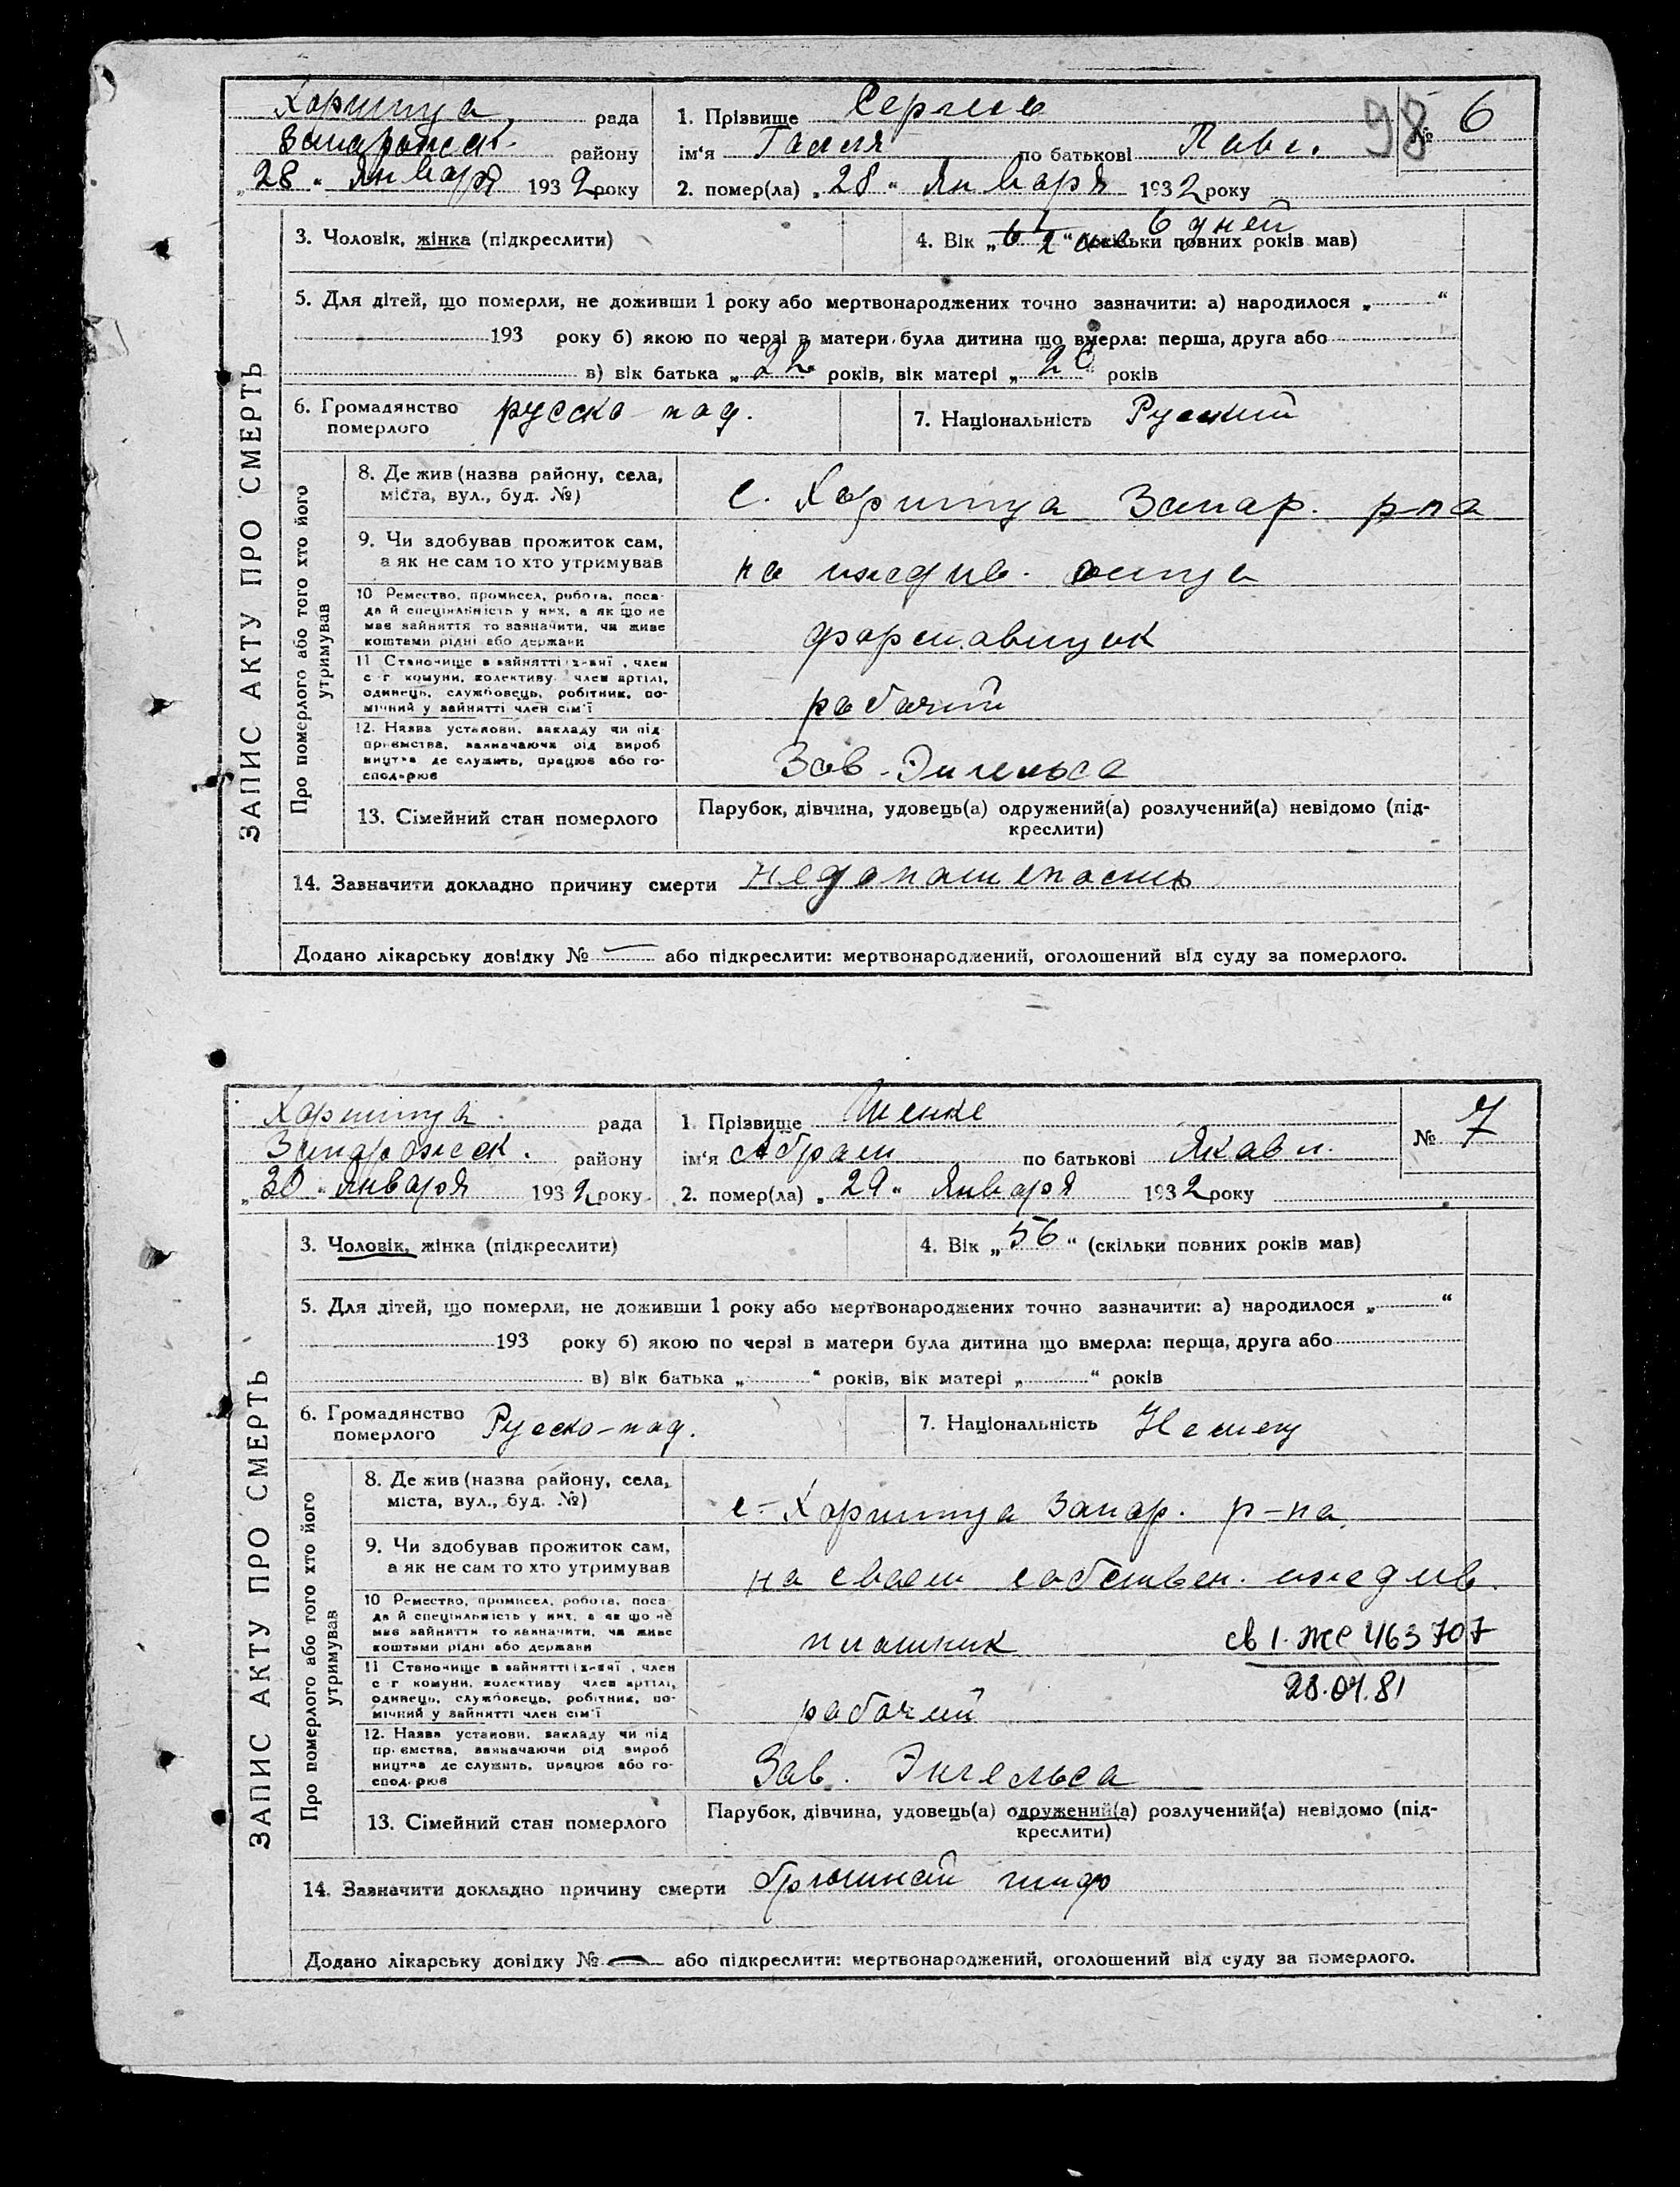 98
Хортица рада
Запорожск. району
„28“ Января 1932 року
1. Прізвище Сергиев № 6
ім‘я Галля по батькові Павл.
2. помер(ла) „28“ Января 1932 року
ЗАПИС АКТУ ПРО СМЕРТЬ
3. Чоловік, жінка (підкреслити)
4. Вік „ “ (скільки повних років мав) 6 дней
5. Для дітей, що померли, не доживши 1 року або мертвонароджених точно зазначити: а) народилося „ “
193 року б) якою по черзі в матери була дитина що вмерла: перша, друга або
в) вік батька „22 років, вік матері „20“ років
6. Громадянство померлого русско-под.
7. Національність Руский
Про померлого або того хто його утримував
8. Де жив (назва району, села, міста, вул., буд. №)
с. Хортица Запор. р-на
9. Чи здобував прожиток сам, а як не сам то хто утримував
на иждив. отца
10 Ремество, промисел, робота, поса-
да й спеціяльність у них, а як що не
має зайняття то зазначити, чи живе
коштами рідні або держави
формовщик
11 Становище в зайнятті , член
с-г комуни, колективу член артілі,
одинець, службовець, робітник, по-
мічний у зайнятті член сім‘ї
рабочий
12. Назва установи, закладу чи під
приємства, зазначаючи рід вироб
ництва де служить, працює або го-
сподарює
Зав. Энгельса
13. Сімейний стан померлого
Парубок, дівчина, удовець(а) одружений(а) розлучений(а) невідомо (під-
креслити)
14. Зазначити докладно причину смерти недоношеность
Додано лікарську довідку № — або підкреслити: мертвонароджений, оголошений від суду за померлого.
Хортица рада
Запорожск. району
„30“ Января 1932 року
1. Прізвище Шенке № 7
ім‘я Абрам по батькові Яковл.
2. помер(ла) „29“ Января 1932 року
ЗАПИС АКТУ ПРО СМЕРТЬ
3. Чоловік, жінка (підкреслити)
4. Вік „56“ (скільки повних років мав)
5. Для дітей, що померли, не доживши 1 року або мертвонароджених точно зазначити: а) народилося „ “
193 року б) якою по черзі в матери була дитина що вмерла: перша, друга або
в) вік батька „ “ років, вік матері „ “ років
6. Громадянство померлого Русско-под.
7. Національність Немец
Про померлого або того хто його утримував
8. Де жив (назва району, села, міста, вул., буд. №)
с. Хортица Запор. р-на
9. Чи здобував прожиток сам, а як не сам то хто утримував
на своем собствен. иждив.
10 Ремество, промисел, робота, поса-
да й спеціяльність у них, а як що не
має зайняття то зазначити, чи живе
коштами рідні або держави
св I-ЖС 463707
28.04.81
11 Становище в зайнятті , член
с-г комуни, колективу член артілі,
одинець, службовець, робітник, по-
мічний у зайнятті член сім‘ї
рабочий
12. Назва установи, закладу чи під
приємства, зазначаючи рід вироб
ництва де служить, працює або го-
сподарює
Зав. Энгельса
13. Сімейний стан померлого
Парубок, дівчина, удовець(а) одружений(а) розлучений(а) невідомо (під-
креслити)
14. Зазначити докладно причину смерти брюшной тиф
Додано лікарську довідку № — або підкреслити: мертвонароджений, оголошений від суду за померлого.